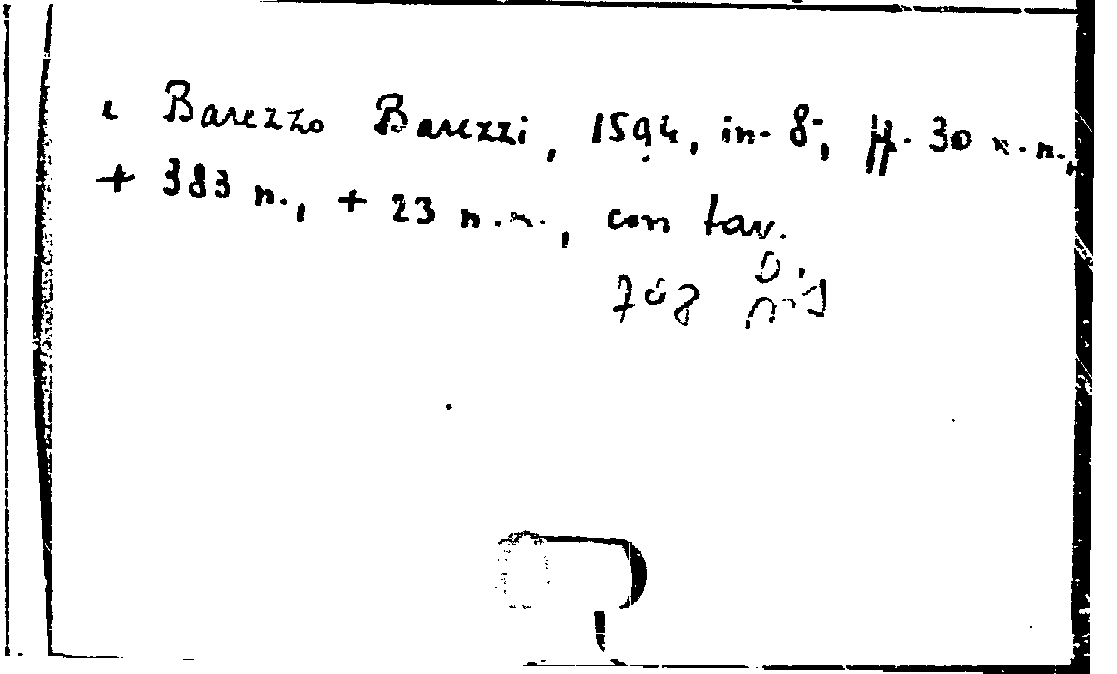 e Barezzo Barezzi, 1594, in-8°, ff. 30 n.n.,
+ 383 n., + 23 n.n., con tav.
708